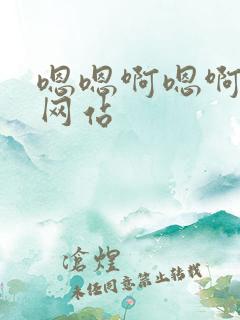 嗯嗯啊嗯啊
网佔
滄煌
未经同意禁止转载